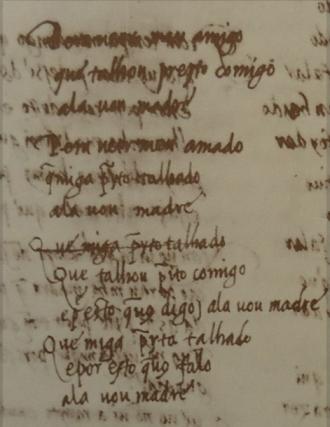 Pom meu amigo
que talhou presto comigo
ala vou madre
Pom meu amado
q̃ miga p̃yto talhado
ala vou madre
Que miga p̃yto talhado
Que talhou p̃ito comigo
e por esto quo digo ala vou madre
Que miga p̃yto talhado
e por esto quo falo
ala vou madre